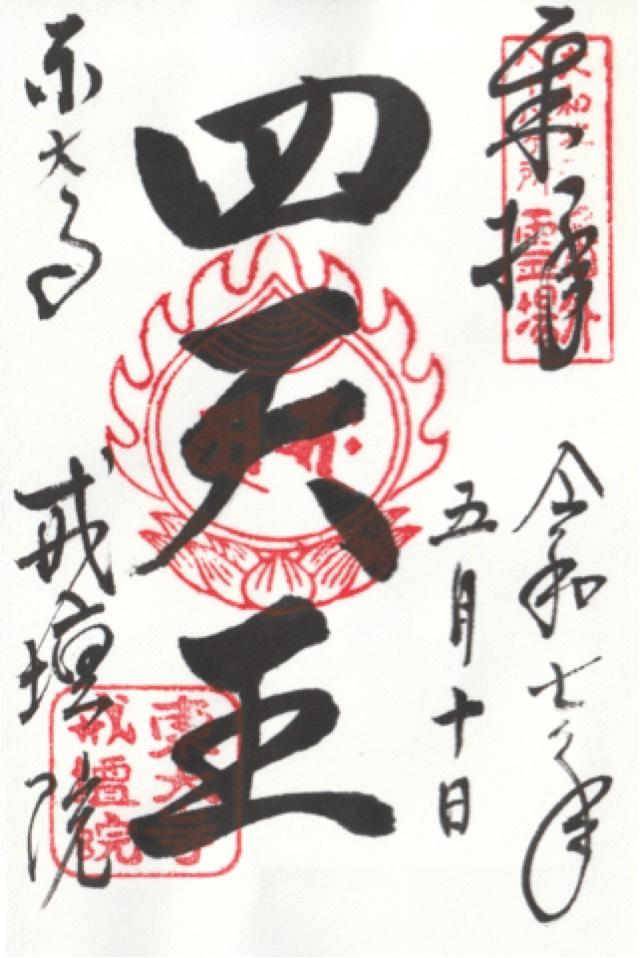 奉拝
霊場
令和七年
五月十日
四天王
東大寺
戒壇院
東大寺
戒壇院